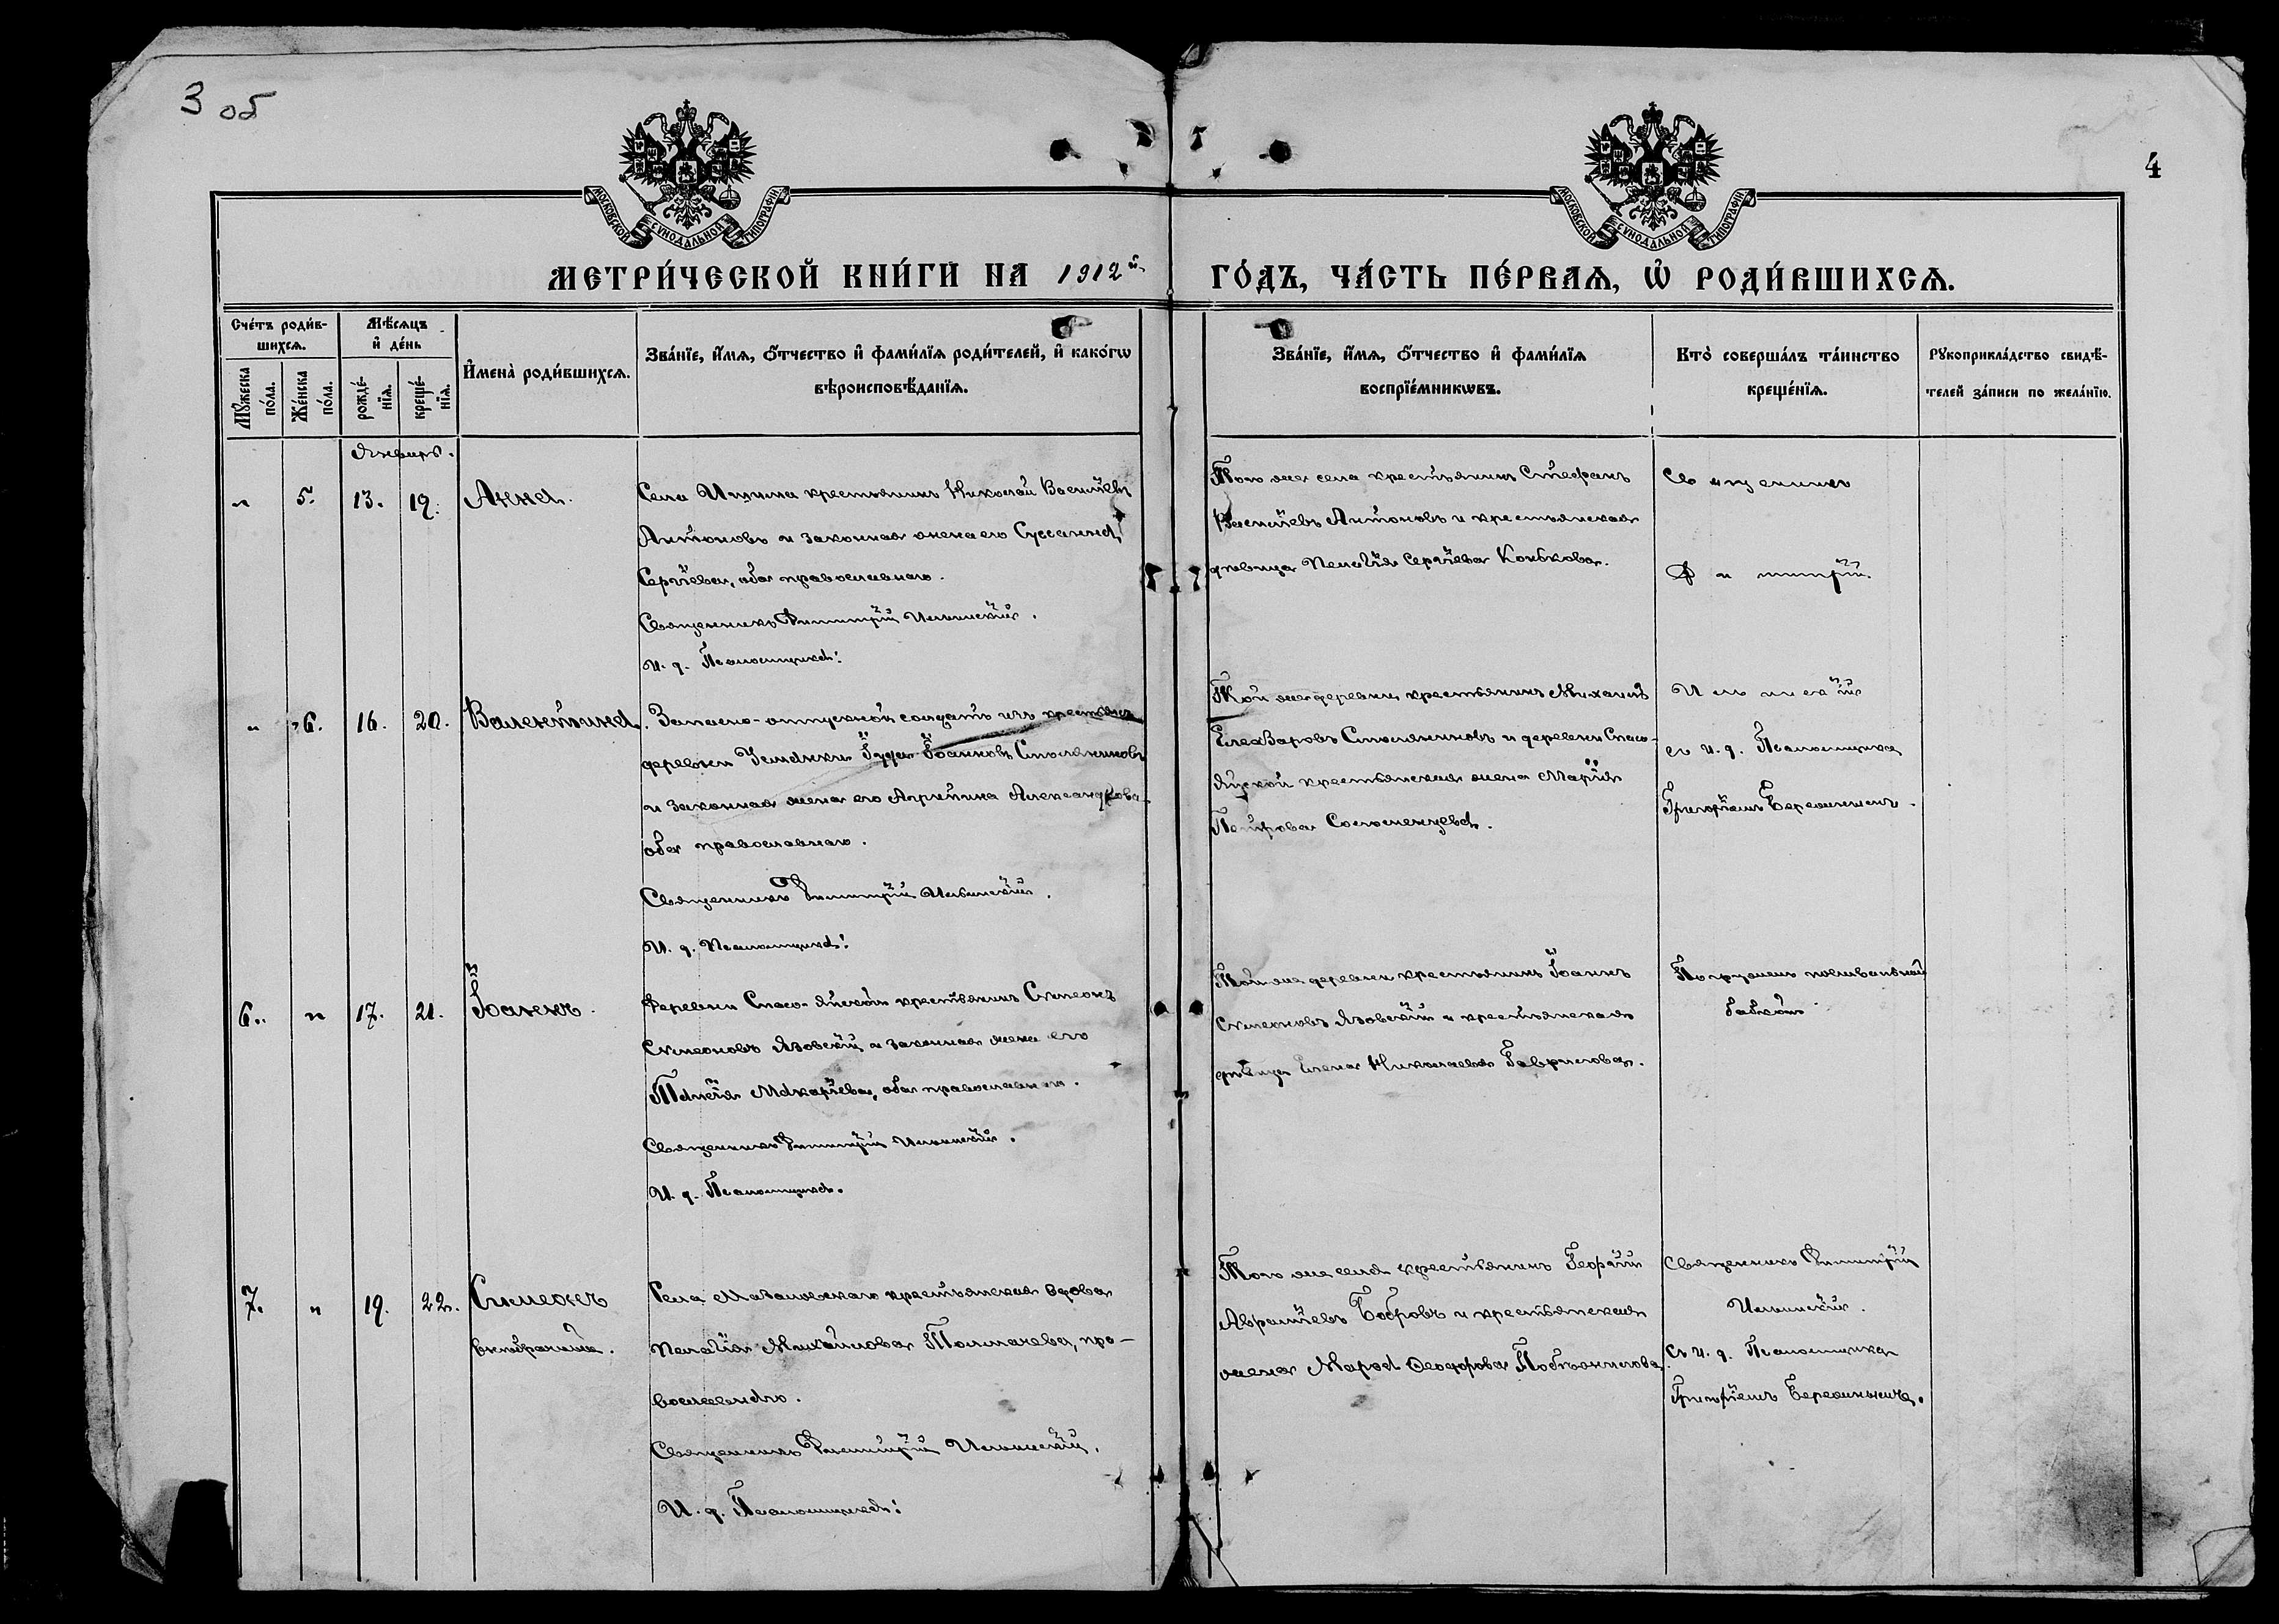 3 об
4
МОСКОВСКОЙ СѴНОДАЛЬНОЙ ТИПОГРАФІИ
МОСКОВСКОЙ СѴНОДАЛЬНОЙ ТИПОГРАФІИ
МЕТРИ́ЧЕСКОЙ КНИ́ГИ НА 1912й
ГО́ДЪ, ЧА́СТЬ ПЕ́РВАѦ, Ѡ РОДИ́ВШИХСѦ.
Сче́тъ роди́в-
шихсѧ.
Мꙋжеска по́ла.
Же́нска по́ла.
Мѣ́сѧцъ
и҆ де́нь
рожде́-
нїѧ.
креще́-
нїѧ.
И҆мена̀ роди́вшихсѧ.
Зва́нїе, и҆́мѧ, о҆́тчество и҆ фами́лїѧ роди́телей, и҆ како́гѡ
вѣроисповѣ́данїѧ.
Зва́нїе, и҆́мѧ, о҆́тчество и҆ фами́лїѧ
воспрїе́мникѡвъ.
Кто̀ соверша́лъ та́инство
креще́нїѧ.
Рꙋкоприкла́дство свидѣ́-
телей за́писи по жела́нїю.
Январь.
"
5.
13.
19.
Анна.
Села Ицима крестьянинъ Николай Васильевъ
Антоновъ и законная жена его Сусанна
Сергіева, оба православнаго.
Священникъ Димитрій Ильинскій.
И. д. Псаломщика:
Того же села крестьянинъ Стефанъ
Васильевъ Антоновъ и крестьянская
дѣвица Пелагія Сергіева Конькова.
Священникъ
Димитрій
"
6.
16.
20.
Валентина.
Запасно-отпускной солдатъ изъ крестьянъ
деревни Іуда Іоанновъ Столяниновъ
и законная жена его Агрипина Александрова,
оба православнаго.
Священникъ Димитрій Ильинскій.
И. д. Псаломщика:
Той же деревни крестьянинъ Михаилъ
Елеазаровъ Столяниновъ и деревни Спасо-
Яцкой крестьянская жена Марія
Петрова Соломенцева.
Ильинскій
съ и. д. Псаломщика
Григоріемъ
6.
"
17.
21.
Іоаннъ.
Деревни Спасо-Яцкой крестьянинъ Симеонъ
Симеоновъ Язовскій и законная жена его
Таисія Макаріева, оба православнаго.
Священникъ Димитрій Ильинскій.
И. д. Псаломщика.
Той же деревни крестьянинъ Іоаннъ
Симеоновъ Язовскій и крестьянская
дѣвица Елена Николаева Гаврилова.
Погруженъ повивальной
бабкой
7.
"
19.
22.
Симеонъ
внѣбрачный.
Села крестьянская вдова
Пелагія Михайлова Толмачева, пра-
вославнаго.
Священникъ Димитрій Ильинскій.
И. д. Псаломщика:
Того же села крестьянинъ Георгій
Авраміевъ Бобровъ и крестьянская
жена Марѳа Ѳеодорова
Священникъ Димитрій
Ильинскій.
съ и. д. Псаломщика
Григоріемъ